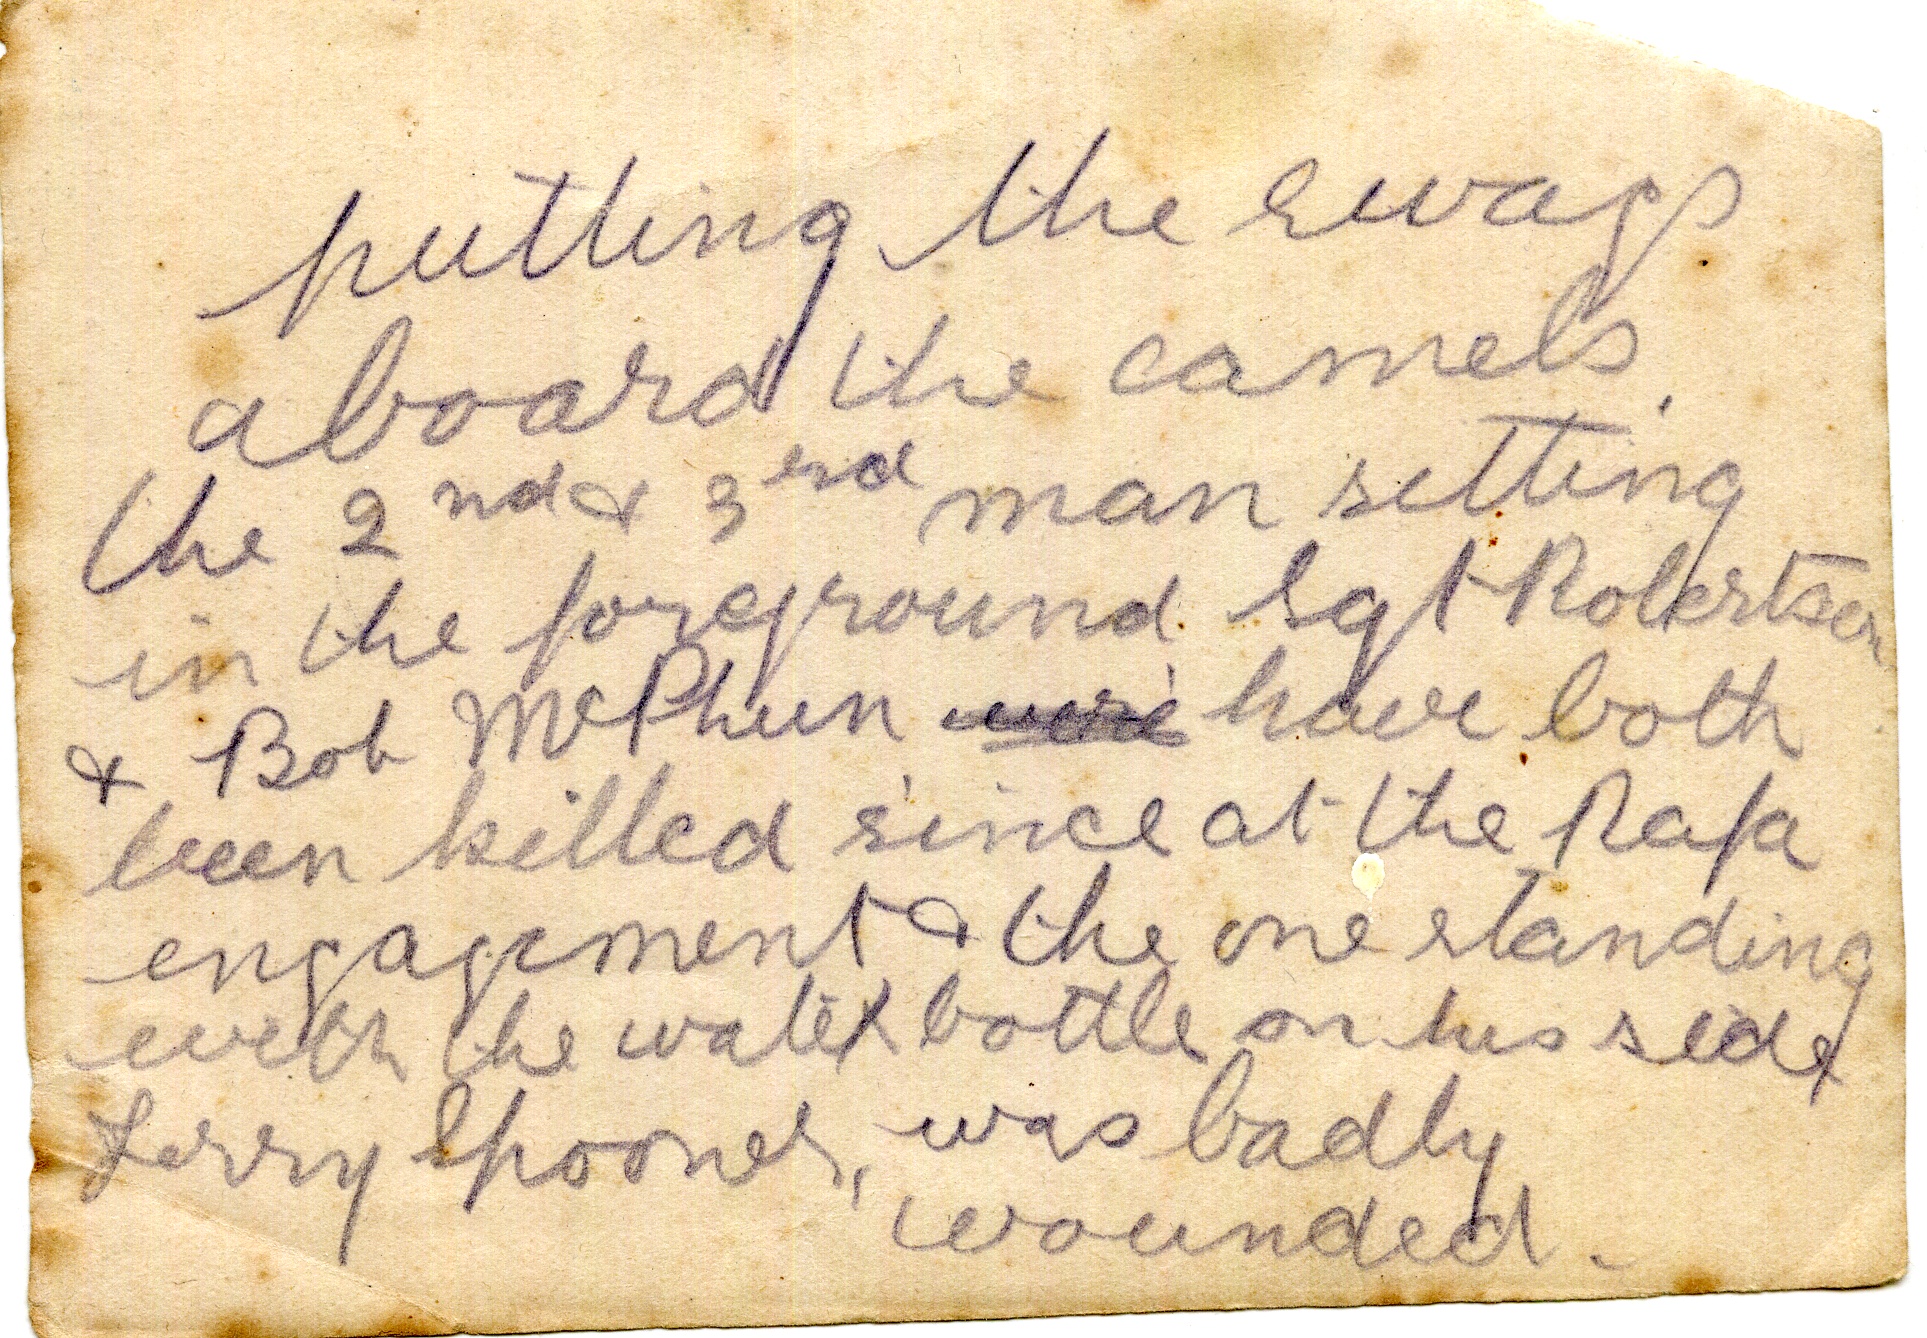 putting the swags
aboard the camels.
the 2nd & 3rd man setting
in the foreground. Sgt Robertson
& Bob McPhun were have both
been killed since at the Rafa
engagement & the one standing
with the water bottle on his side
Terry Spooner, was badly
wounded.